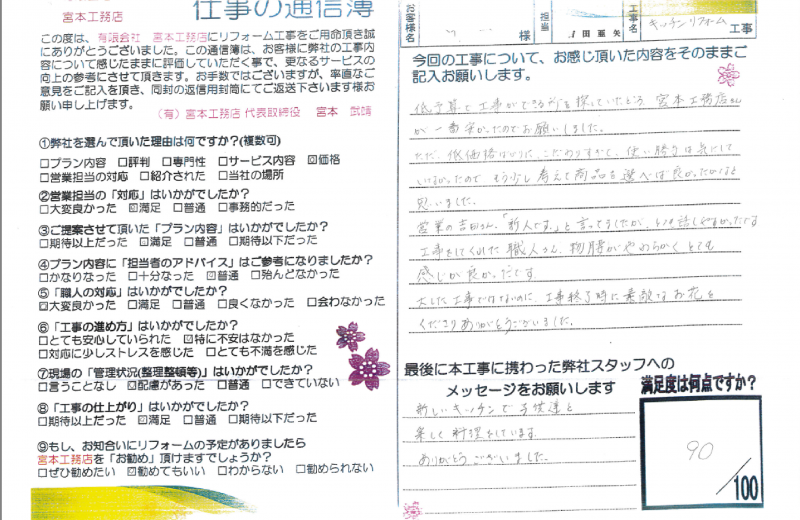 宮本工務店
仕事の通信簿
この度は、有限会社 宮本工務店にリフォーム工事をご用命頂き誠
にありがとうございました。この通信簿は、お客様に弊社の工事内
容について感じたままに評価していただく事で、更なるサービスの
向上の参考にさせて頂きます。お手数ではございますが、率直なご
意見をご記入を頂き、同封の返信用封筒にてご返送下さいます様お
願い申し上げます。
(有)宮本工務店 代表取締役 宮本 武晴
①弊社を選んで頂いた理由は何ですか?(複数可)
□プラン内容 □評判 □専門性 □サービス内容 ☑価格
□営業担当の対応 □紹介された □当社の場所
②営業担当の「対応」はいかがでしたか?
□大変良かった ☑満足 □普通 □事務的だった
③ご提案させて頂いた「プラン内容」はいかがでしたか?
□期待以上だった ☑満足 □普通 □期待以下だった
④プラン内容に「担当者のアドバイス」はご参考になりましたか?
□かなりなった □十分なった ☑普通 □殆んどなかった
⑤「職人の対応」はいかがでしたか?
☑大変良かった □満足 □普通 □良くなかった □会わなかった
⑥「工事の進め方」はいかがでしたか?
□とても安心していられた ☑特に不安はなかった
□対応に少しストレスを感じた □とても不満を感じた
⑦現場の「管理状況(整理整頓等)」はいかがでしたか?
□言うことなし ☑配慮があった □普通 □できていない
⑧「工事の仕上がり」はいかがでしたか?
□期待以上だった ☑満足 □普通 □期待以下だった
⑨もし、お知合いにリフォームの予定がありましたら
宮本工務店を「お勧め」頂けますでしょうか?
□ぜひ勧めたい ☑勧めてもいい □わからない □勧められない
お客様名 様 担当 田 亜矢 工事名 キッチンリフォーム 工事
今回の工事について、お感じ頂いた内容をそのままご
記入お願いします。
低予算で工事ができる所を探していたところ 宮本工務店さん
が一番安かったのでお願いしました。
ただ、低価格ばかりに こだわりすぎて、使い勝手は気にして
いなかったので もう少し考えて商品を選べば良かったかなと
思いました。
営業の吉田さん、「新人です。」と言ってましたが、とても話しやすかったです
工事をしてくれた職人さん、物腰がやわらかくとても
感じが良かったです
大した工事ではないのに、工事終了時に素敵なお花を
くださりありがとうございました。
最後に本工事に携わった弊社スタッフへの
メッセージをお願いします
新しいキッチンで子供達と
楽しく料理をしています。
ありがとうございました。
満足度は何点ですか?
90
/100